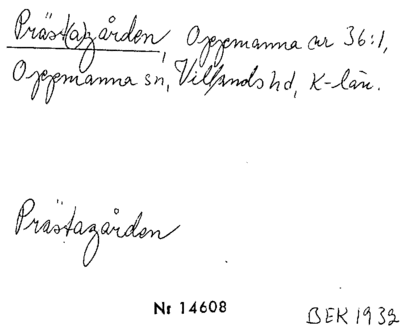 Präst(a)gården, Oppmanna nr 36:1,
Oppmanna sn, Villands hd, K-län.
Prästagården
Nr 14608
BEK 1932